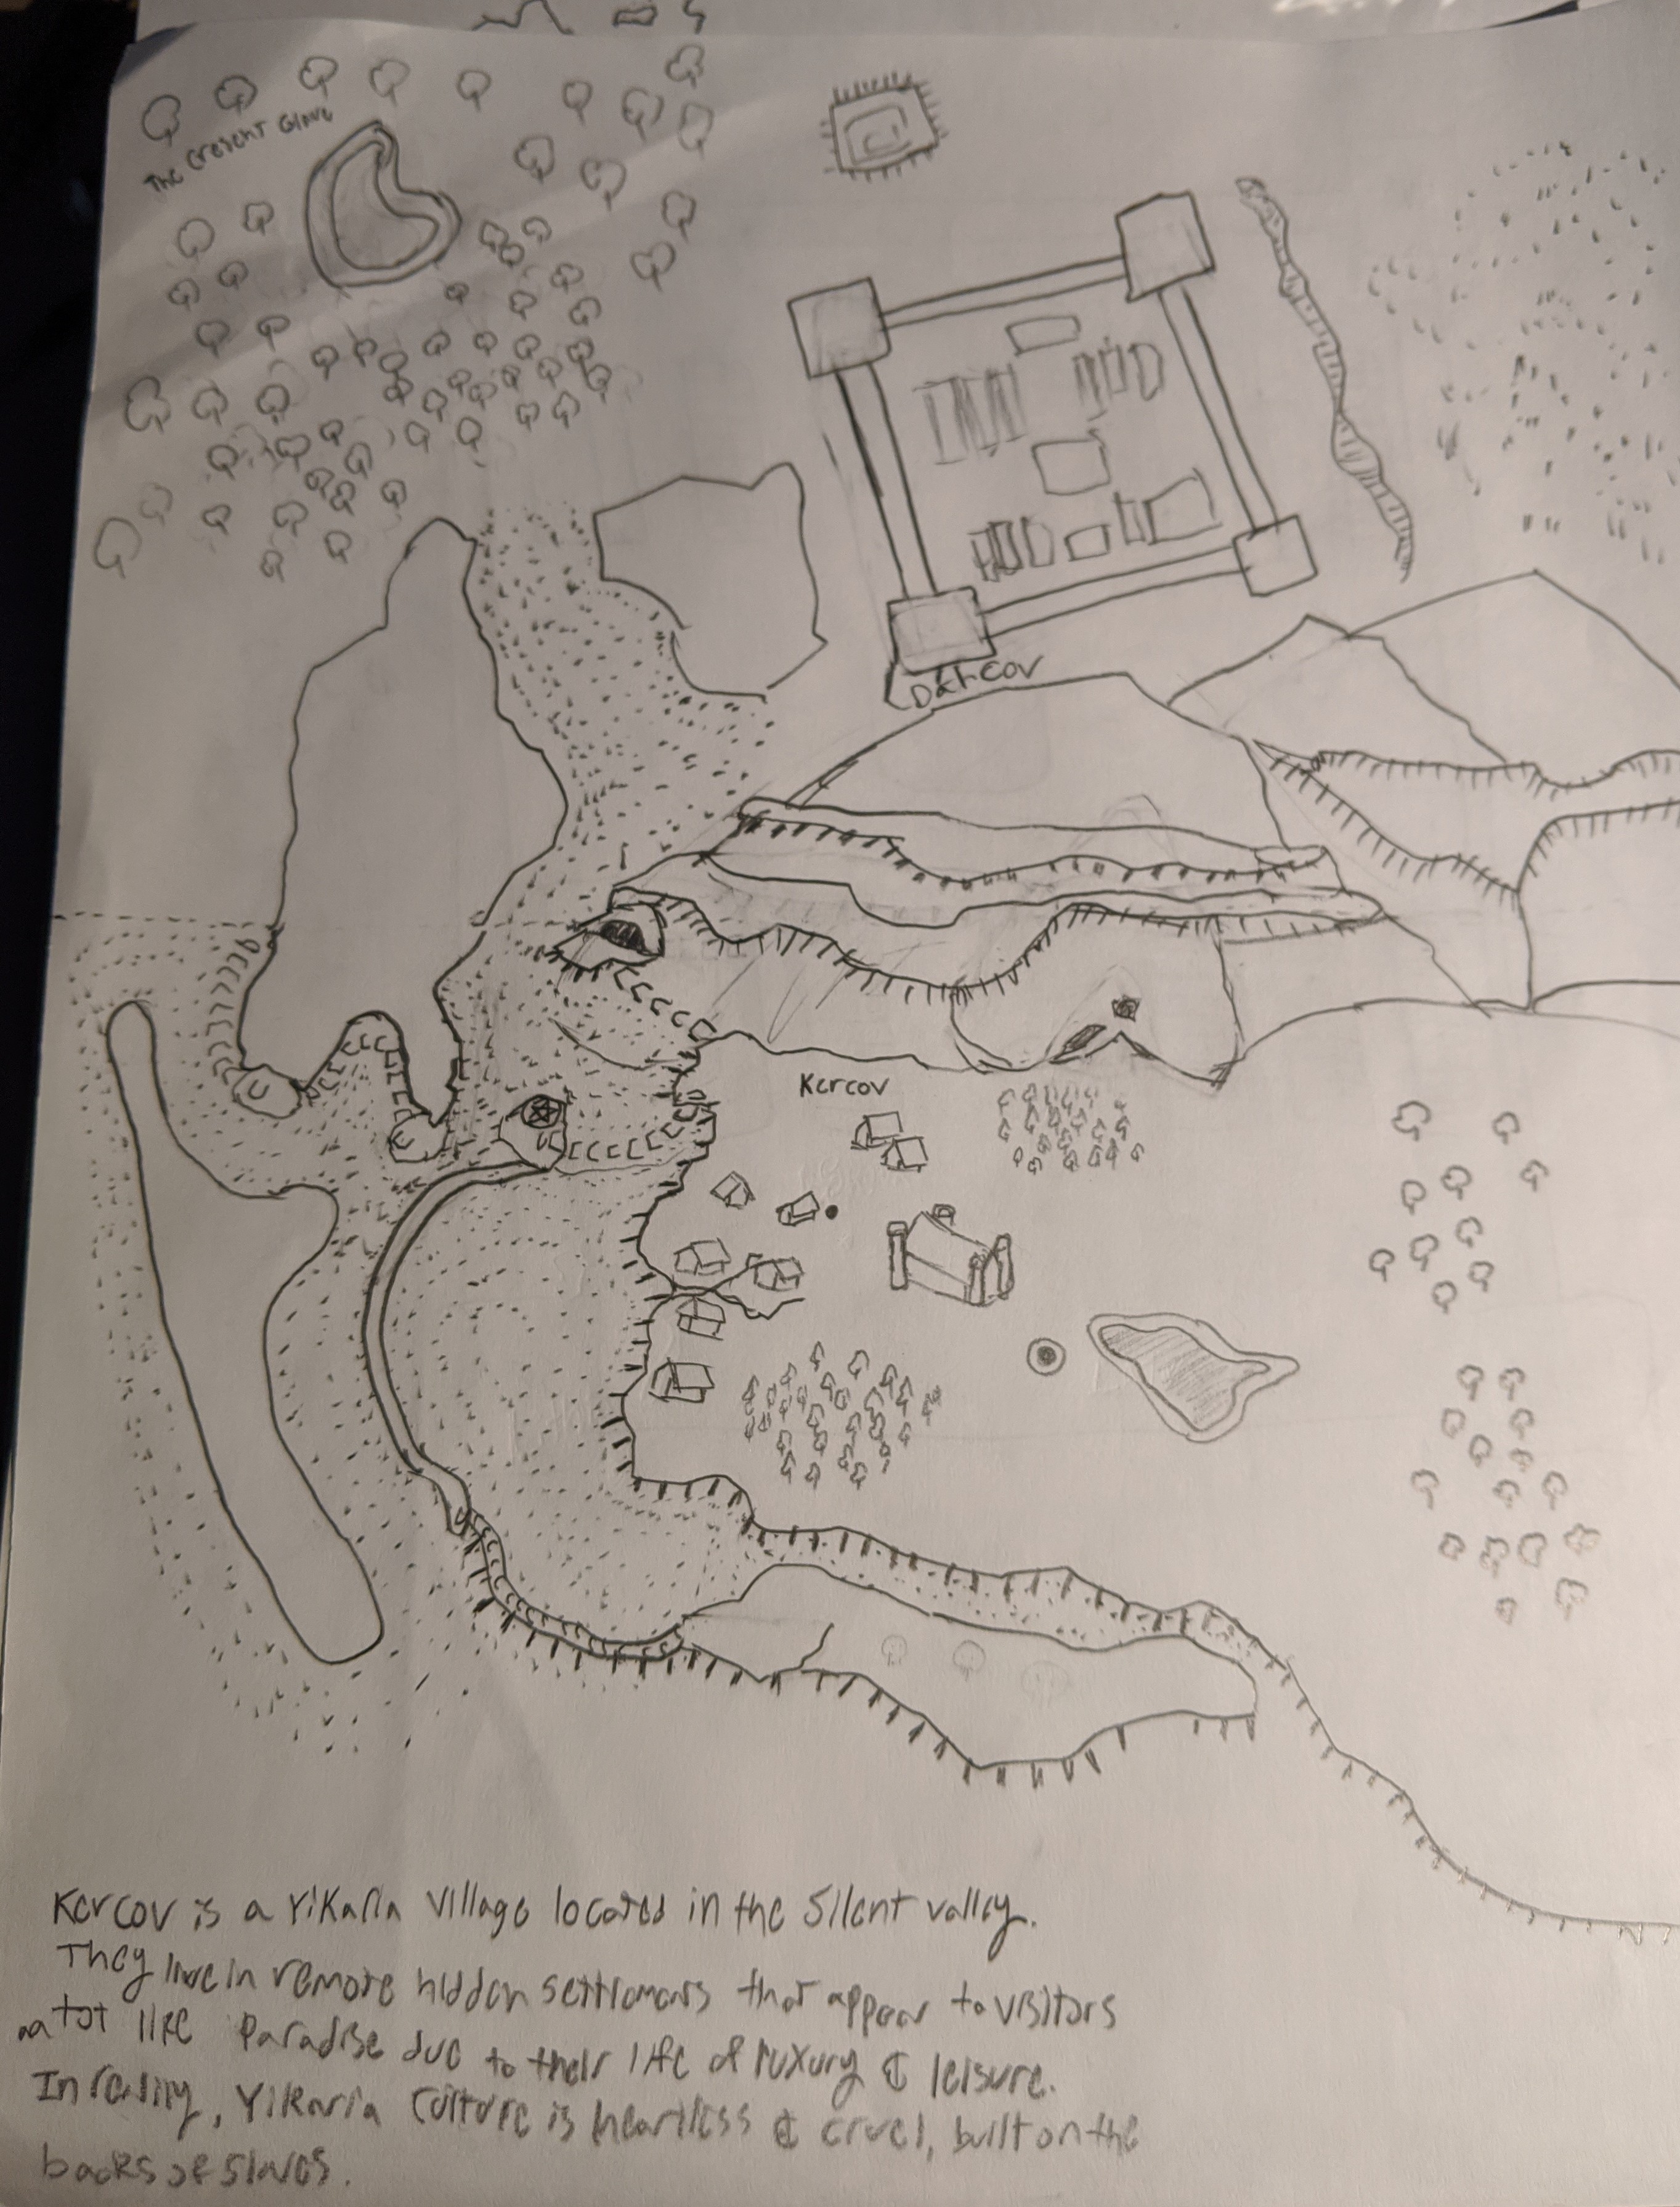 The Cresent Glove
Datcov
Kercov
Kercov is a Yikaria village located in the Silent valley.
They live in remote hidden settlements that appear to visitors
life paradise due to their life of luxury & leisure.
In reality, Yikaria culture is heartless & cruel, built on the
backs of slaves.